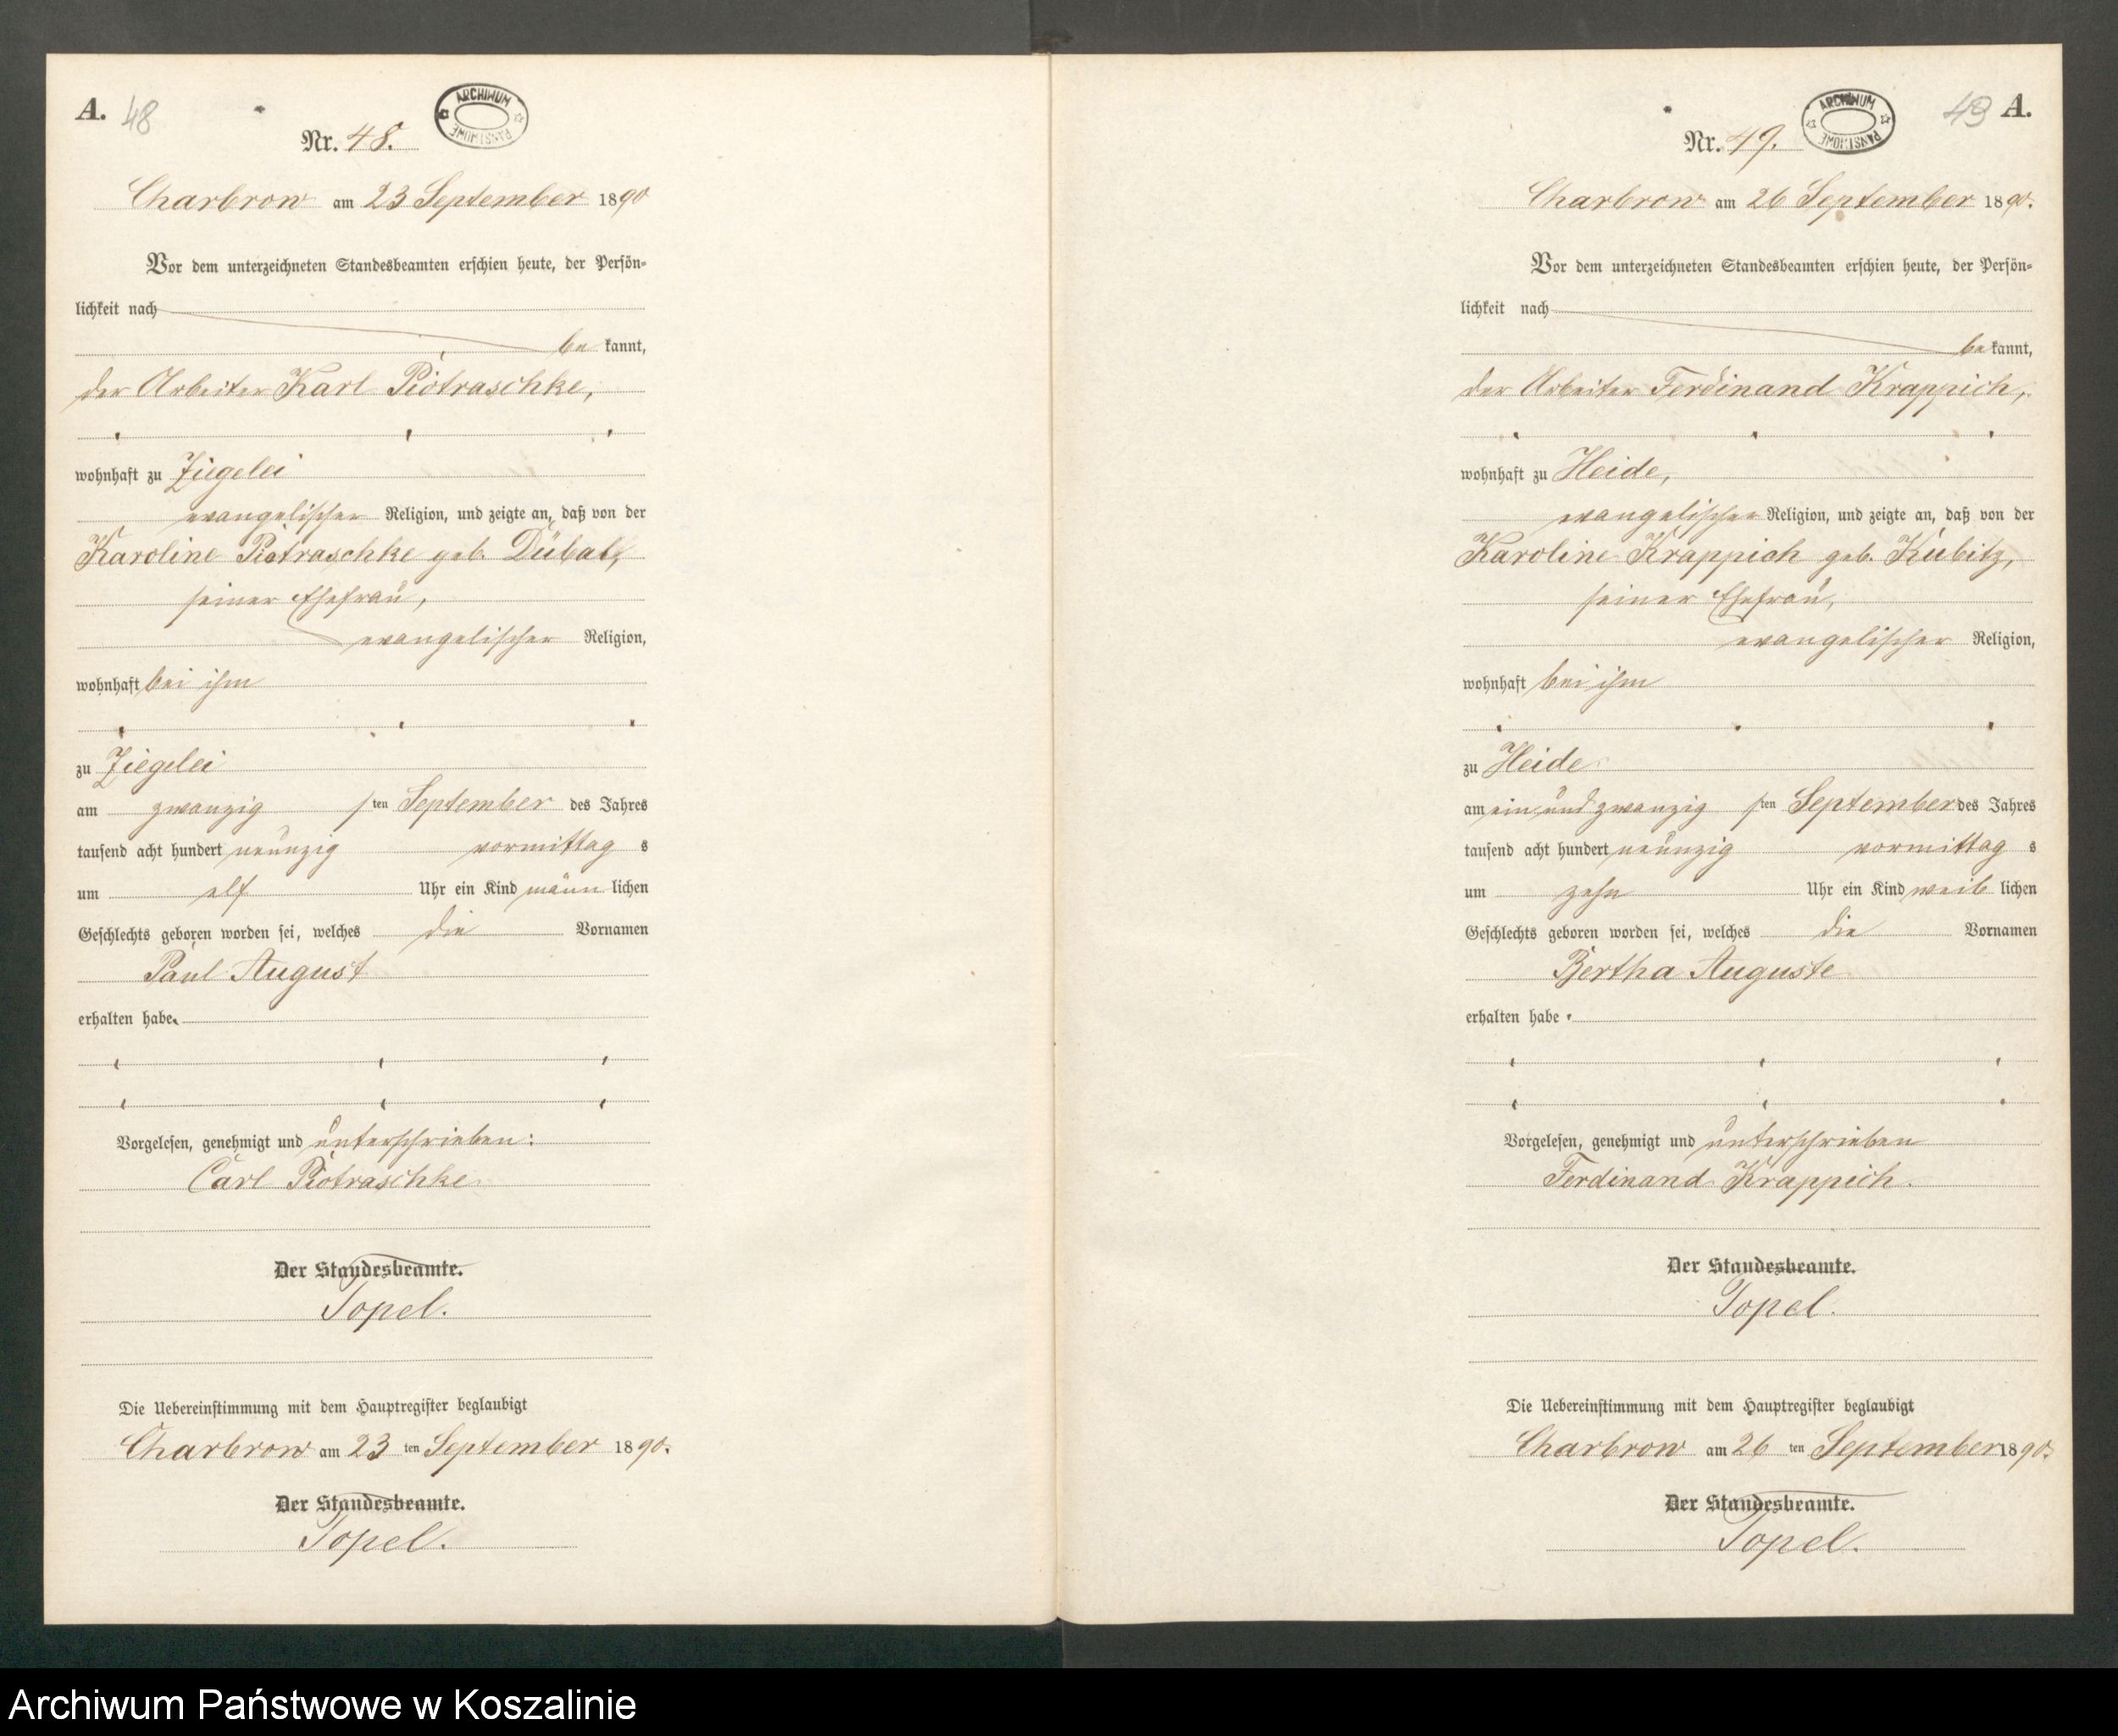 A. 48
ARCHIWUM PAŃSTWOWE
Nr. 48.
Charbrow am 23 September 1890
Vor dem unterzeichneten Standesbeamten erschien heute, der Persön-
lichkeit nach
be kannt,
der Arbeiter Karl Piotraschke,
wohnhaft zu Ziegelei
evangelischer Religion, und zeigte an, daß von der
Karoline Piotraschke geb. Dübal,
seiner Ehefrau,
evangelischer Religion,
wohnhaft bei ihm
zu Ziegelei
am zwanzig sten September des Jahres
tausend acht hundert neunzig vormittag s
um elf Uhr ein Kind männ lichen
Geschlechts geboren worden sei, welches die Vornamen
Paul August
erhalten habe.
Vorgelesen, genehmigt und unterschrieben:
Carl Piotraschke
Der Standesbeamte.
Topel.
Die Uebereinstimmung mit dem Hauptregister beglaubigt
Charbrow am 23 ten September 1890.
Der Standesbeamte.
Topel.
49 A.
ARCHIWUM PAŃSTWOWE
Nr. 49.
Charbrow am 26 September 1890.
Vor dem unterzeichneten Standesbeamten erschien heute, der Persön-
lichkeit nach
be kannt,
der Arbeiter Ferdinand Krappich,
wohnhaft zu Heide,
evangelischer Religion, und zeigte an, daß von der
Karoline Krappich geb. Kubitz,
seiner Ehefrau,
evangelischer Religion,
wohnhaft bei ihm
zu Heide
am ein und zwanzig sten September des Jahres
tausend acht hundert neunzig vormittag s
um zehn Uhr ein Kind weib lichen
Geschlechts geboren worden sei, welches die Vornamen
Bertha Auguste
erhalten habe.
Vorgelesen, genehmigt und unterschrieben
Ferdinand Krappich.
Der Standesbeamte.
Topel.
Die Uebereinstimmung mit dem Hauptregister beglaubigt
Charbrow am 26 ten September 1890.
Der Standesbeamte.
Topel.
Archiwum Państwowe w Koszalinie